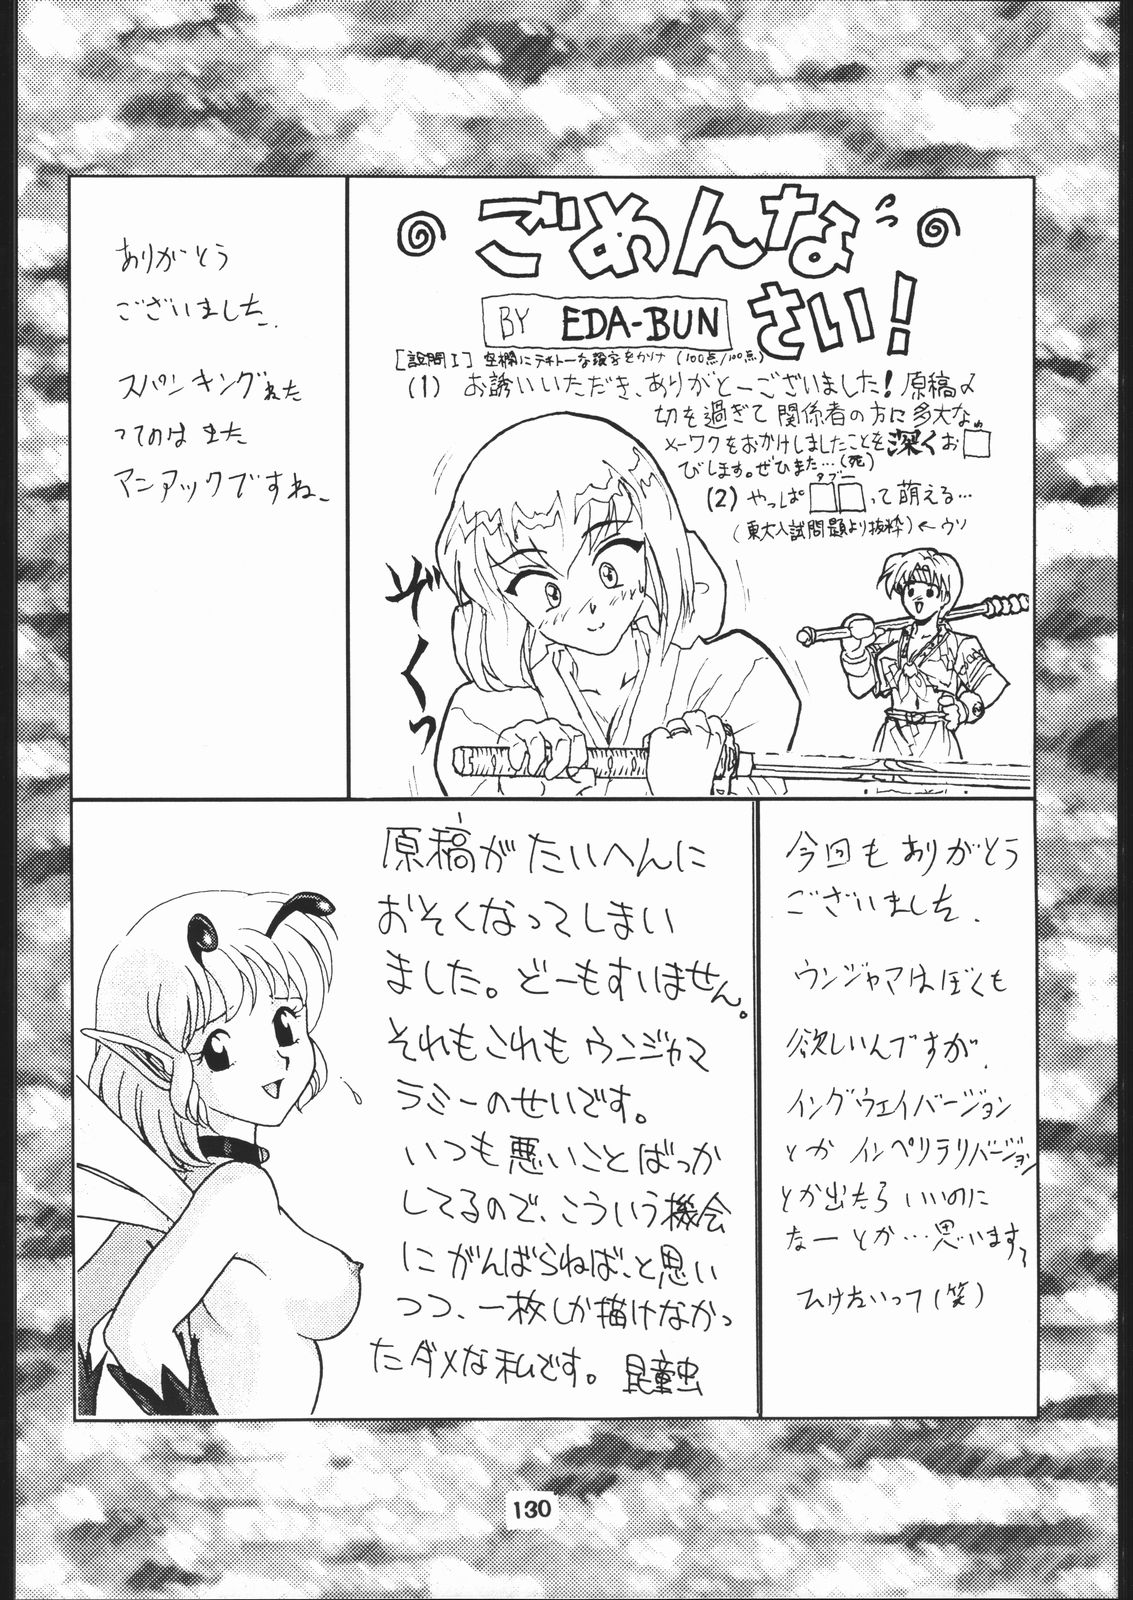 ごめんな
さい！
BY EDA-BUN
[設問I] 空欄にテキトーな漢字をかけ (100点/100点)
(1) お誘いいただき、ありがとーございました！原稿〆
切を過ぎて関係者の方に多大な
メーワクをおかけしましたことを深くお□
びします。ぜひまた…(死)
タブー
(2) やっぱ□□って萌える…
(東大入試問題より抜粋)←ウソ
ぞくっ
ありがとう
ございました。
スパンキングねた
ってのはまた
マニアックですね。
今回もありがとう
ございました。
ウンジャマはぼくも
欲しいんですが、
イングウェイバージョン
とかインペリテリバージョン
とか出たらいいのに
なーとか…思います
ひけないって(笑)
原稿がたいへんに
おそくなってしまい
ました。どーもすいません。
それもこれもウンジャマ
ラミーのせいです。
いつも悪いことばっか
してるので、こういう機会
にがんばらねば、と思い
つつ、一枚しか描けなかっ
たダメな私です。 昆童虫
130